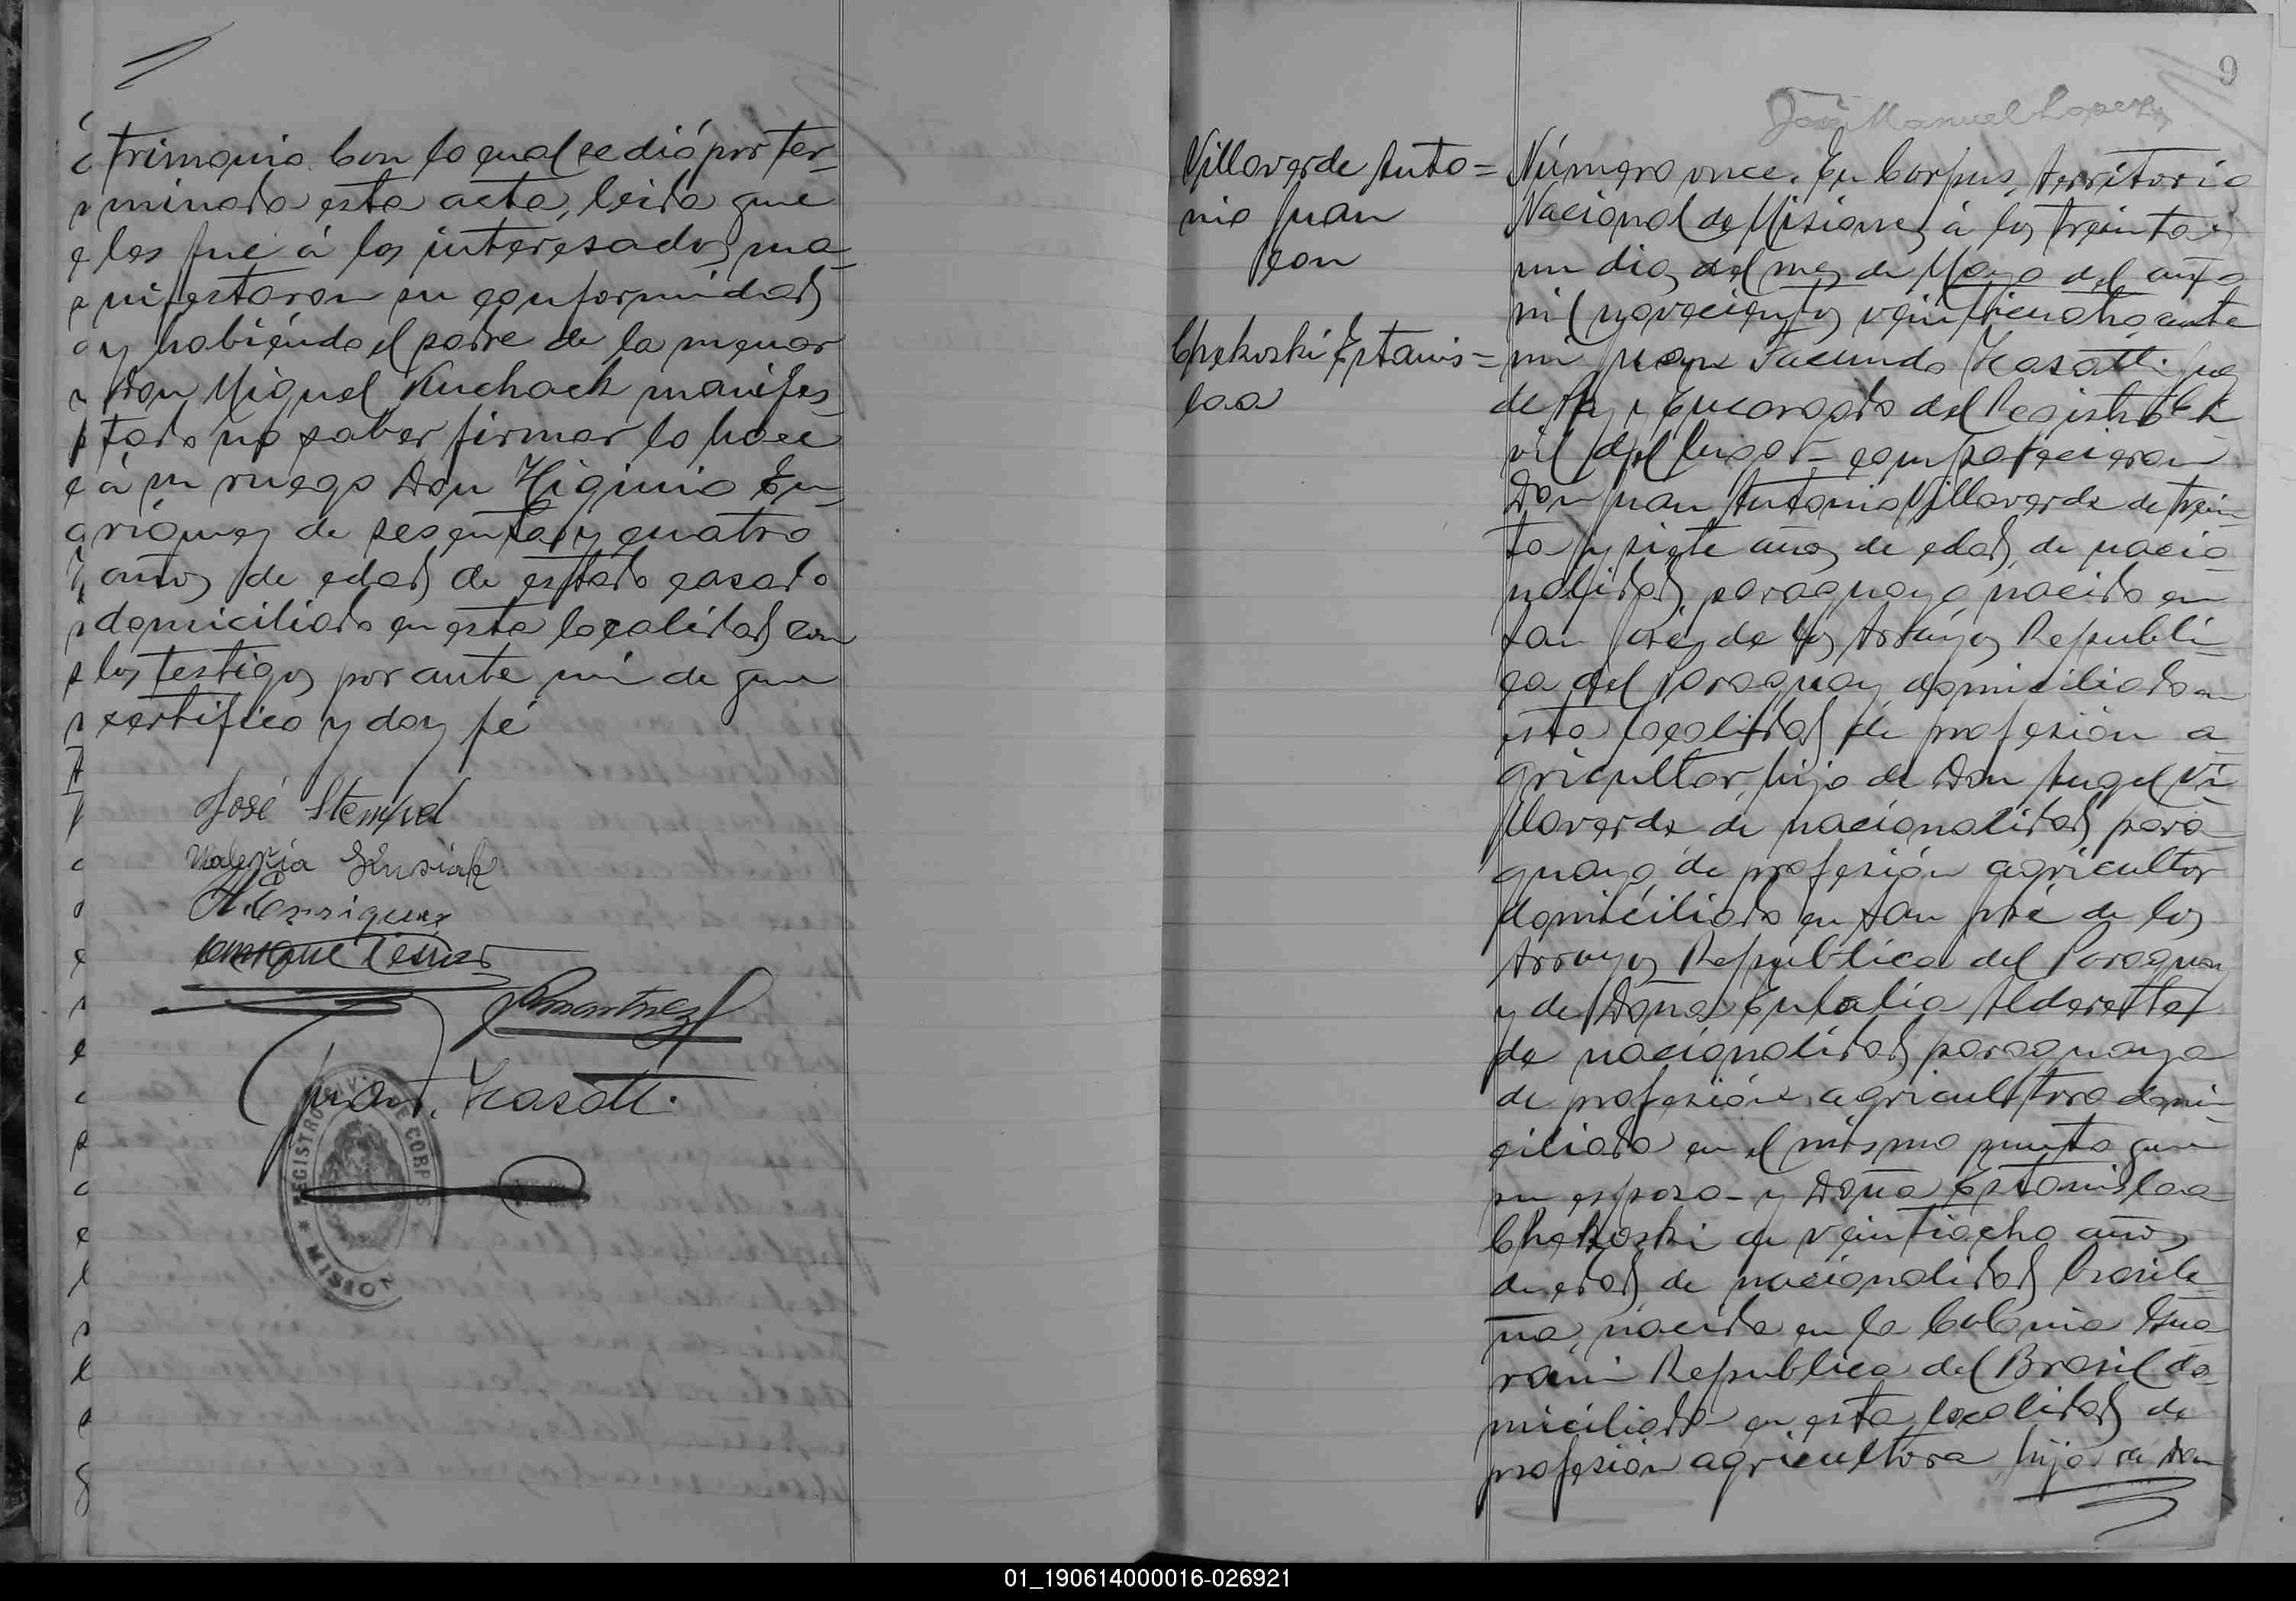 trimonio. Con lo cual se dió por ter-
minada esta acta, leida que
les fué á los interesados, ma-
nifestaron su conformidad
y habiendo el padre de la menor
Don Miguel Kuchack manifes-
tado no saber firmar lo hace
á su ruego Don Higinio En-
riquez de sesenta y cuatro
años de edad de estado casado
domiciliado en esta localidad con
los testigos por ante mi de que
certifico y doy fé
José Stempel
Valeria
H. Enriquez
Enrique
Martinez
Juan F. Casatti
REGISTRO CIVIL DE CORPUS
* MISIONES
9
José Manuel Lopez
Villaverde Anto=
nio Juan
con
Chekoski Estanis=
laa
Número once. En Corpus, Territorio
Nacional de Misiones á los treinta y
un dias del mes de Mayo del año
mil novecientos veinticuatro ante
mi Juan Facundo Casatti Juez
de Paz y Encargado del Registro Ci
vil del lugar = comparecieron
Don Juan Antonio Villaverde de trein
ta y siete años de edad, de nacio-
nalidad paraguaya nacido en
San José de los Arroyos Republi-
ca del Paraguay domiciliado en
esta localidad de profesión a
gricultor, hijo de Don Angel Vi
llaverde de nacionalidad para-
guaya, de profesión agricultor
domiciliado en San José de los
Arroyos República del Paraguay
y de Doña Eulalia Alderette
de nacionalidad paraguaya
de profesión agricultora domi-
ciliada en el mismo punto que
su esposo - y Doña Estanislaa
Chekoski de veintiocho años
de edad, de nacionalidad brasile-
ña, nacida en la Colonia Gua-
rani Republica del Brasil do-
miciliada en esta localidad de
profesión agricultora hija de Don
01_190614000016-026921